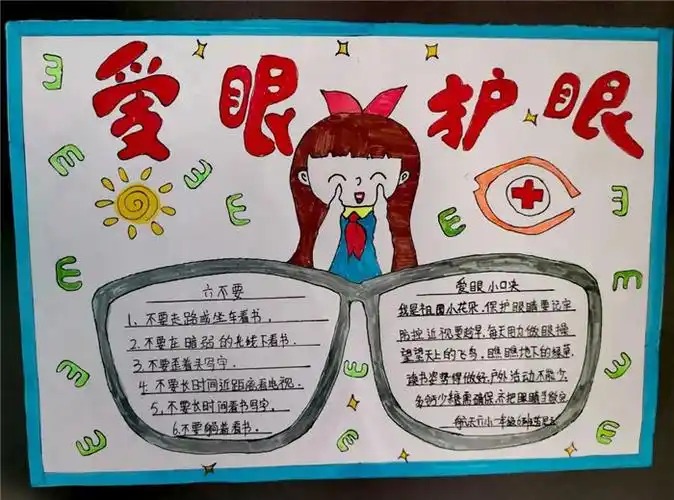 爱眼护眼
六不要
1、不要走路或坐车看书。
2、不要在暗弱的光线下看书。
3、不要歪着头写字。
4、不要长时间近距离看电视。
5、不要长时间看书写字。
6、不要躺着看书。
爱眼小口决
我是祖国小花朵,保护眼睛要记牢
防控近视要趁早,每天用力做眼操
望望天上的飞鸟,瞧瞧地下的绿草
读书姿势得做好,户外活动不能少
多钙少糖需确保,齐把眼睛
小一年级6班